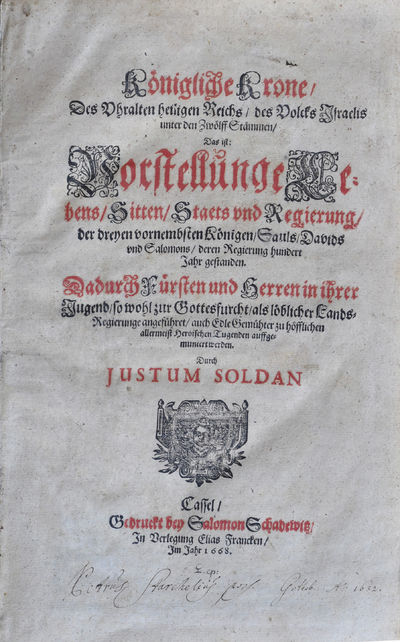 Königliche Krone/
Des Vhralten heiligen Reichs/ des Volcks Israelis
unter den Zwölff Stämmen/
Das ist:
Vorstellunge Le-
bens/ Sitten/ Staets vnd Regierung/
der dreyen vornembsten Königen/ Sauls/ Davids
vnd Salomons/ deren Regierung hundert
Jahr gestanden.
Dadurch Fürsten und Herren in ihrer
Jugend/ so wohl zur Gottesfurcht/ als löblicher Lands-
Regierunge angeführet/ auch Edle Gemühter zu höfflichen
allermeist Heroischen Tugenden auffge-
muntert werden.
Durch
JUSTUM SOLDAN
Cassel/
Gedruckt bey Salomon Schadewitz/
In Verlegung Elias Francken/
Im Jahr 1668.